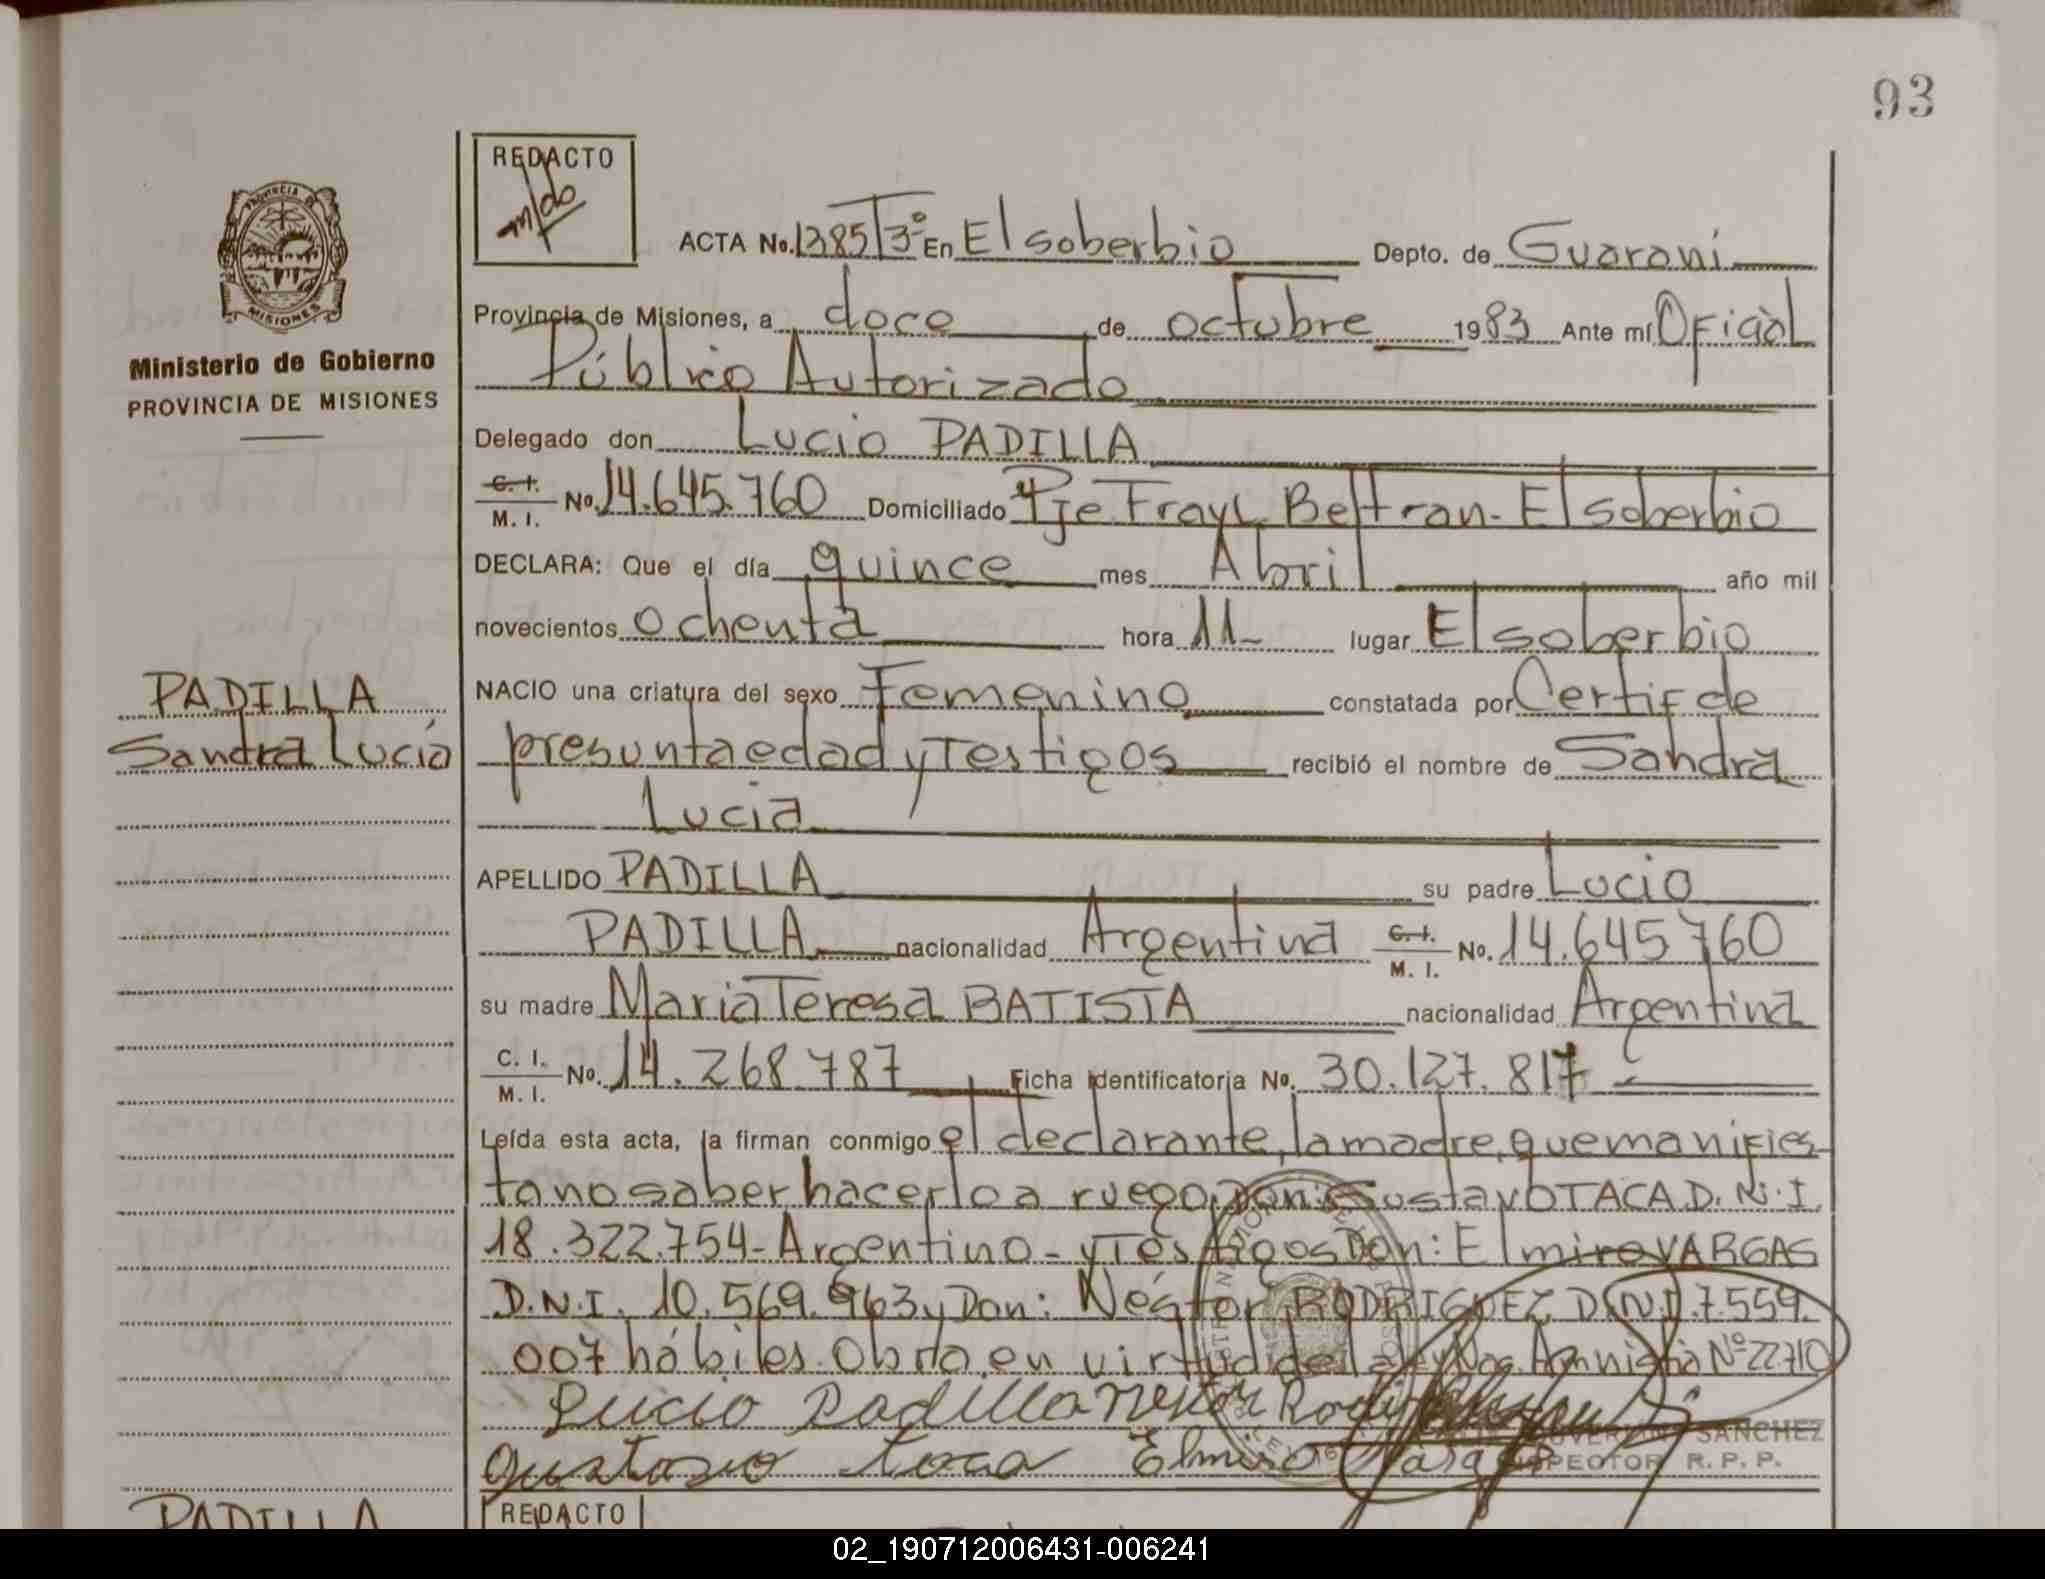 93
REDACTO
ACTA No. 1385 T3º En El soberbio Depto. de Guarani
PROVINCIA DE
MISIONES
Provincia de Misiones, a doce de octubre 1983 Ante mí Oficial
Ministerio de Gobierno
PROVINCIA DE MISIONES
Público Autorizado
Delegado don Lucio PADILLA
C. I.
M. I. No. 14.645.760 Domiciliado Pje Fray L. Beltran - El soberbio
DECLARA: Que el día quince mes Abril año mil
novecientos ochenta hora 11- lugar El soberbio
PADILLA
Sandra Lucia
NACIO una criatura del sexo Femenino constatada por Certif de
presunta edad y Testigos recibió el nombre de Sandra
Lucia
APELLIDO PADILLA su padre Lucio
PADILLA nacionalidad Argentina C. I. M. I. No. 14.645760
su madre Maria Teresa BATISTA nacionalidad Argentina
C. I.
M. I. No. 14.268.787 Ficha Identificatoria No. 30.127.817
Leída esta acta, la firman conmigo el declarante, la madre, que manifies-
ta no saber hacerlo a ruego, Don: Gustavo TACA D.N.I.
18.322.754- Argentino- y Testigos Don: Elmiro VARGAS
D.N.I. 10.569.963 y Don: Néstor RODRIGUEZ D.N.I. 7.559.
007 hábiles. Obrdo en virtud de la Ley Nac. Amnistia Nº 22710
Lucio Padilla Nestor Rodriguez
SANCHEZ
Gustavo Taca Elmiro Vargas
INSPECTOR R. P. P.
PADILLA
REDACTO
02_190712006431-006241